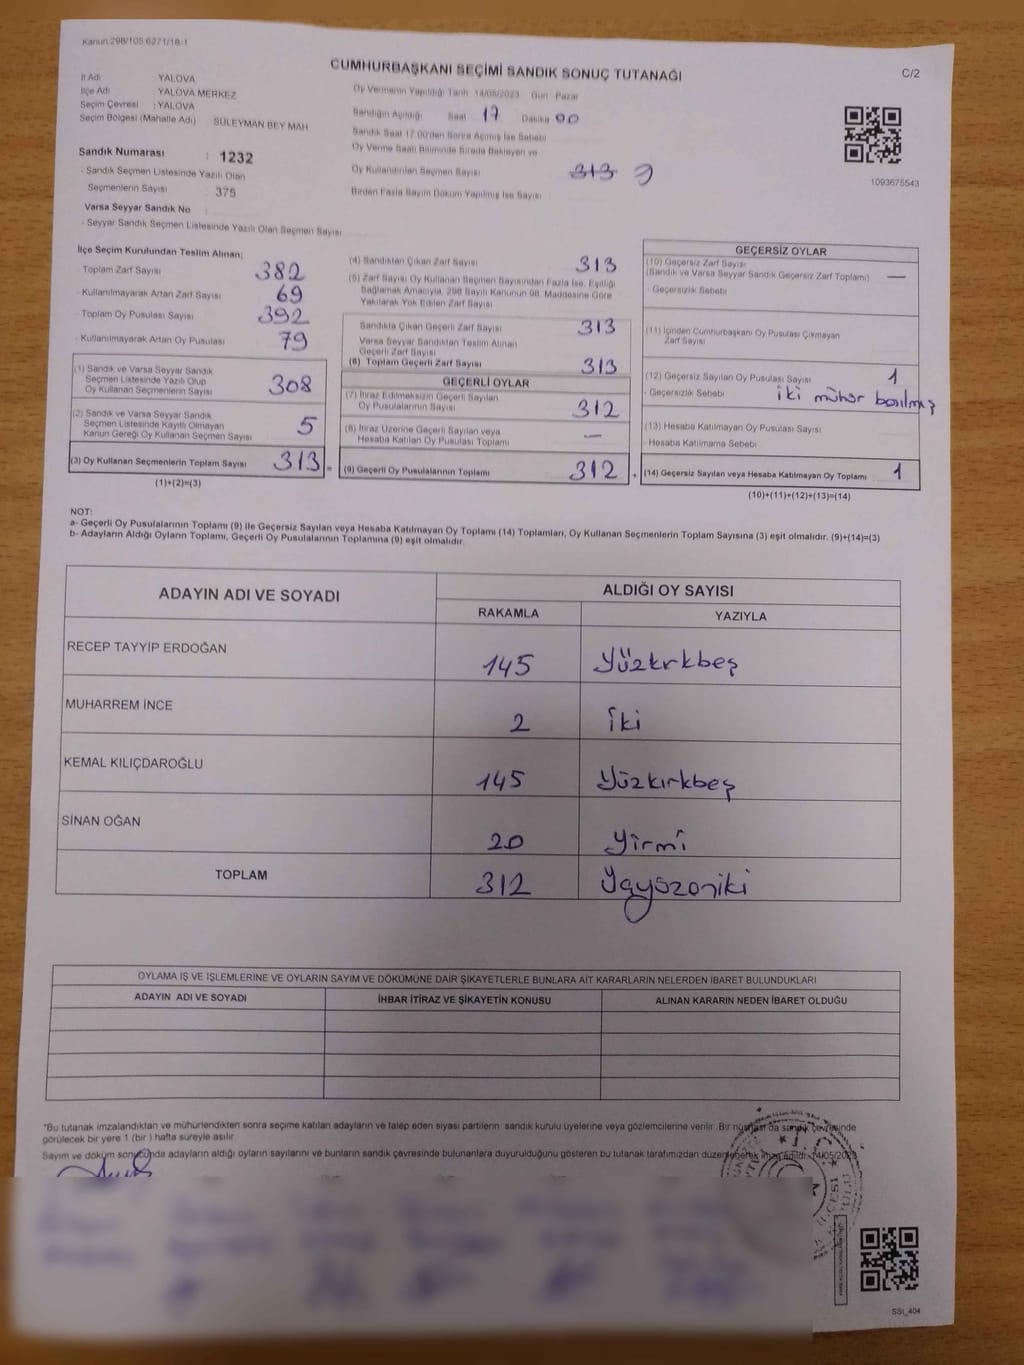 Kanun:298/105.6271/18-1
CUMHURBAŞKANI SEÇİMİ SANDIK SONUÇ TUTANAĞI
C/2
İl Adı YALOVA
İlçe Adı YALOVA MERKEZ
Seçim Çevresi : YALOVA
Seçim Bölgesi (Mahalle Adı) SÜLEYMAN BEY MAH
Oy Vermenin Yapıldığı Tarih 14/05/2023 Gün Pazar
Sandığın Açıldığı Saat 17 Dakika 00
Sandık Saat 17.00'den Sonra Açılmış İse Sebebi
Oy Verme Saati Bitiminde Sırada Bekleyen ve
Oy Kullandırılan Seçmen Sayısı 313
Birden Fazla Sayım Döküm Yapılmış İse Sayısı
1093675543
Sandık Numarası : 1232
- Sandık Seçmen Listesinde Yazılı Olan
Seçmenlerin Sayısı 375
Varsa Seyyar Sandık No
- Seyyar Sandık Seçmen Listesinde Yazılı Olan Seçmen Sayısı
İlçe Seçim Kurulundan Teslim Alınan;
- Toplam Zarf Sayısı 382
- Kullanılmayarak Artan Zarf Sayısı 69
- Toplam Oy Pusulası Sayısı 392
- Kullanılmayarak Artan Oy Pusulası 79
(1) Sandık ve Varsa Seyyar Sandık
Seçmen Listesinde Yazılı Olup
Oy Kullanan Seçmenlerin Sayısı 308
(2) Sandık ve Varsa Seyyar Sandık
Seçmen Listesinde Kayıtlı Olmayan
Kanun Gereği Oy Kullanan Seçmen Sayısı 5
(3) Oy Kullanan Seçmenlerin Toplam Sayısı 313 =
(1)+(2)=(3)
(4) Sandıktan Çıkan Zarf Sayısı 313
(5) Zarf Sayısı Oy Kullanan Seçmen Sayısından Fazla İse, Eşitliği
Sağlamak Amacıyla, 298 Sayılı Kanunun 98. Maddesine Göre
Yakılarak Yok Edilen Zarf Sayısı
Sandıkta Çıkan Geçerli Zarf Sayısı 313
Varsa Seyyar Sandıktan Teslim Alınan
Geçerli Zarf Sayısı
(6) Toplam Geçerli Zarf Sayısı 313
GEÇERLİ OYLAR
(7) İtiraz Edilmeksizin Geçerli Sayılan
Oy Pusulalarının Sayısı 312
(8) İtiraz Üzerine Geçerli Sayılan veya
Hesaba Katılan Oy Pusulası Toplamı —
(9) Geçerli Oy Pusulalarının Toplamı 312 +
GEÇERSİZ OYLAR
(10) Geçersiz Zarf Sayısı
(Sandık ve Varsa Seyyar Sandık Geçersiz Zarf Toplamı) —
- Geçersizlik Sebebi
(11) İçinden Cumhurbaşkanı Oy Pusulası Çıkmayan
Zarf Sayısı
(12) Geçersiz Sayılan Oy Pusulası Sayısı 1
- Geçersizlik Sebebi iki mühür basılmış
(13) Hesaba Katılmayan Oy Pusulası Sayısı
- Hesaba Katılmama Sebebi
(14) Geçersiz Sayılan veya Hesaba Katılmayan Oy Toplamı 1
(10)+(11)+(12)+(13)=(14)
NOT:
a- Geçerli Oy Pusulalarının Toplamı (9) ile Geçersiz Sayılan veya Hesaba Katılmayan Oy Toplamı (14) Toplamları, Oy Kullanan Seçmenlerin Toplam Sayısına (3) eşit olmalıdır. (9)+(14)=(3)
b- Adayların Aldığı Oyların Toplamı, Geçerli Oy Pusulalarının Toplamına (9) eşit olmalıdır.
ADAYIN ADI VE SOYADI
ALDIĞI OY SAYISI
RAKAMLA YAZIYLA
RECEP TAYYİP ERDOĞAN 145 Yüzkırkbeş
MUHARREM İNCE 2 İki
KEMAL KILIÇDAROĞLU 145 Yüzkırkbeş
SİNAN OĞAN 20 Yirmi
TOPLAM 312
OYLAMA İŞ VE İŞLEMLERİNE VE OYLARIN SAYIM VE DÖKÜMÜNE DAİR ŞİKAYETLERLE BUNLARA AİT KARARLARIN NELERDEN İBARET BULUNDUKLARI
ADAYIN ADI VE SOYADI İHBAR İTİRAZ VE ŞİKAYETİN KONUSU ALINAN KARARIN NEDEN İBARET OLDUĞU
"Bu tutanak imzalandıktan ve mühürlendikten sonra seçime katılan adayların ve talep eden siyasi partilerin sandık kurulu üyelerine veya gözlemcilerine verilir. Bir nüshası da sandık çevresinde
görülecek bir yere 1 (bir) hafta süreyle asılır.
Sayım ve döküm sonucunda adayların aldığı oyların sayılarını ve bunların sandık çevresinde bulunanlara duyurulduğunu gösteren bu tutanak tarafımızdan düzenlenerek imza edildi. 14/05/2023
SSI_404